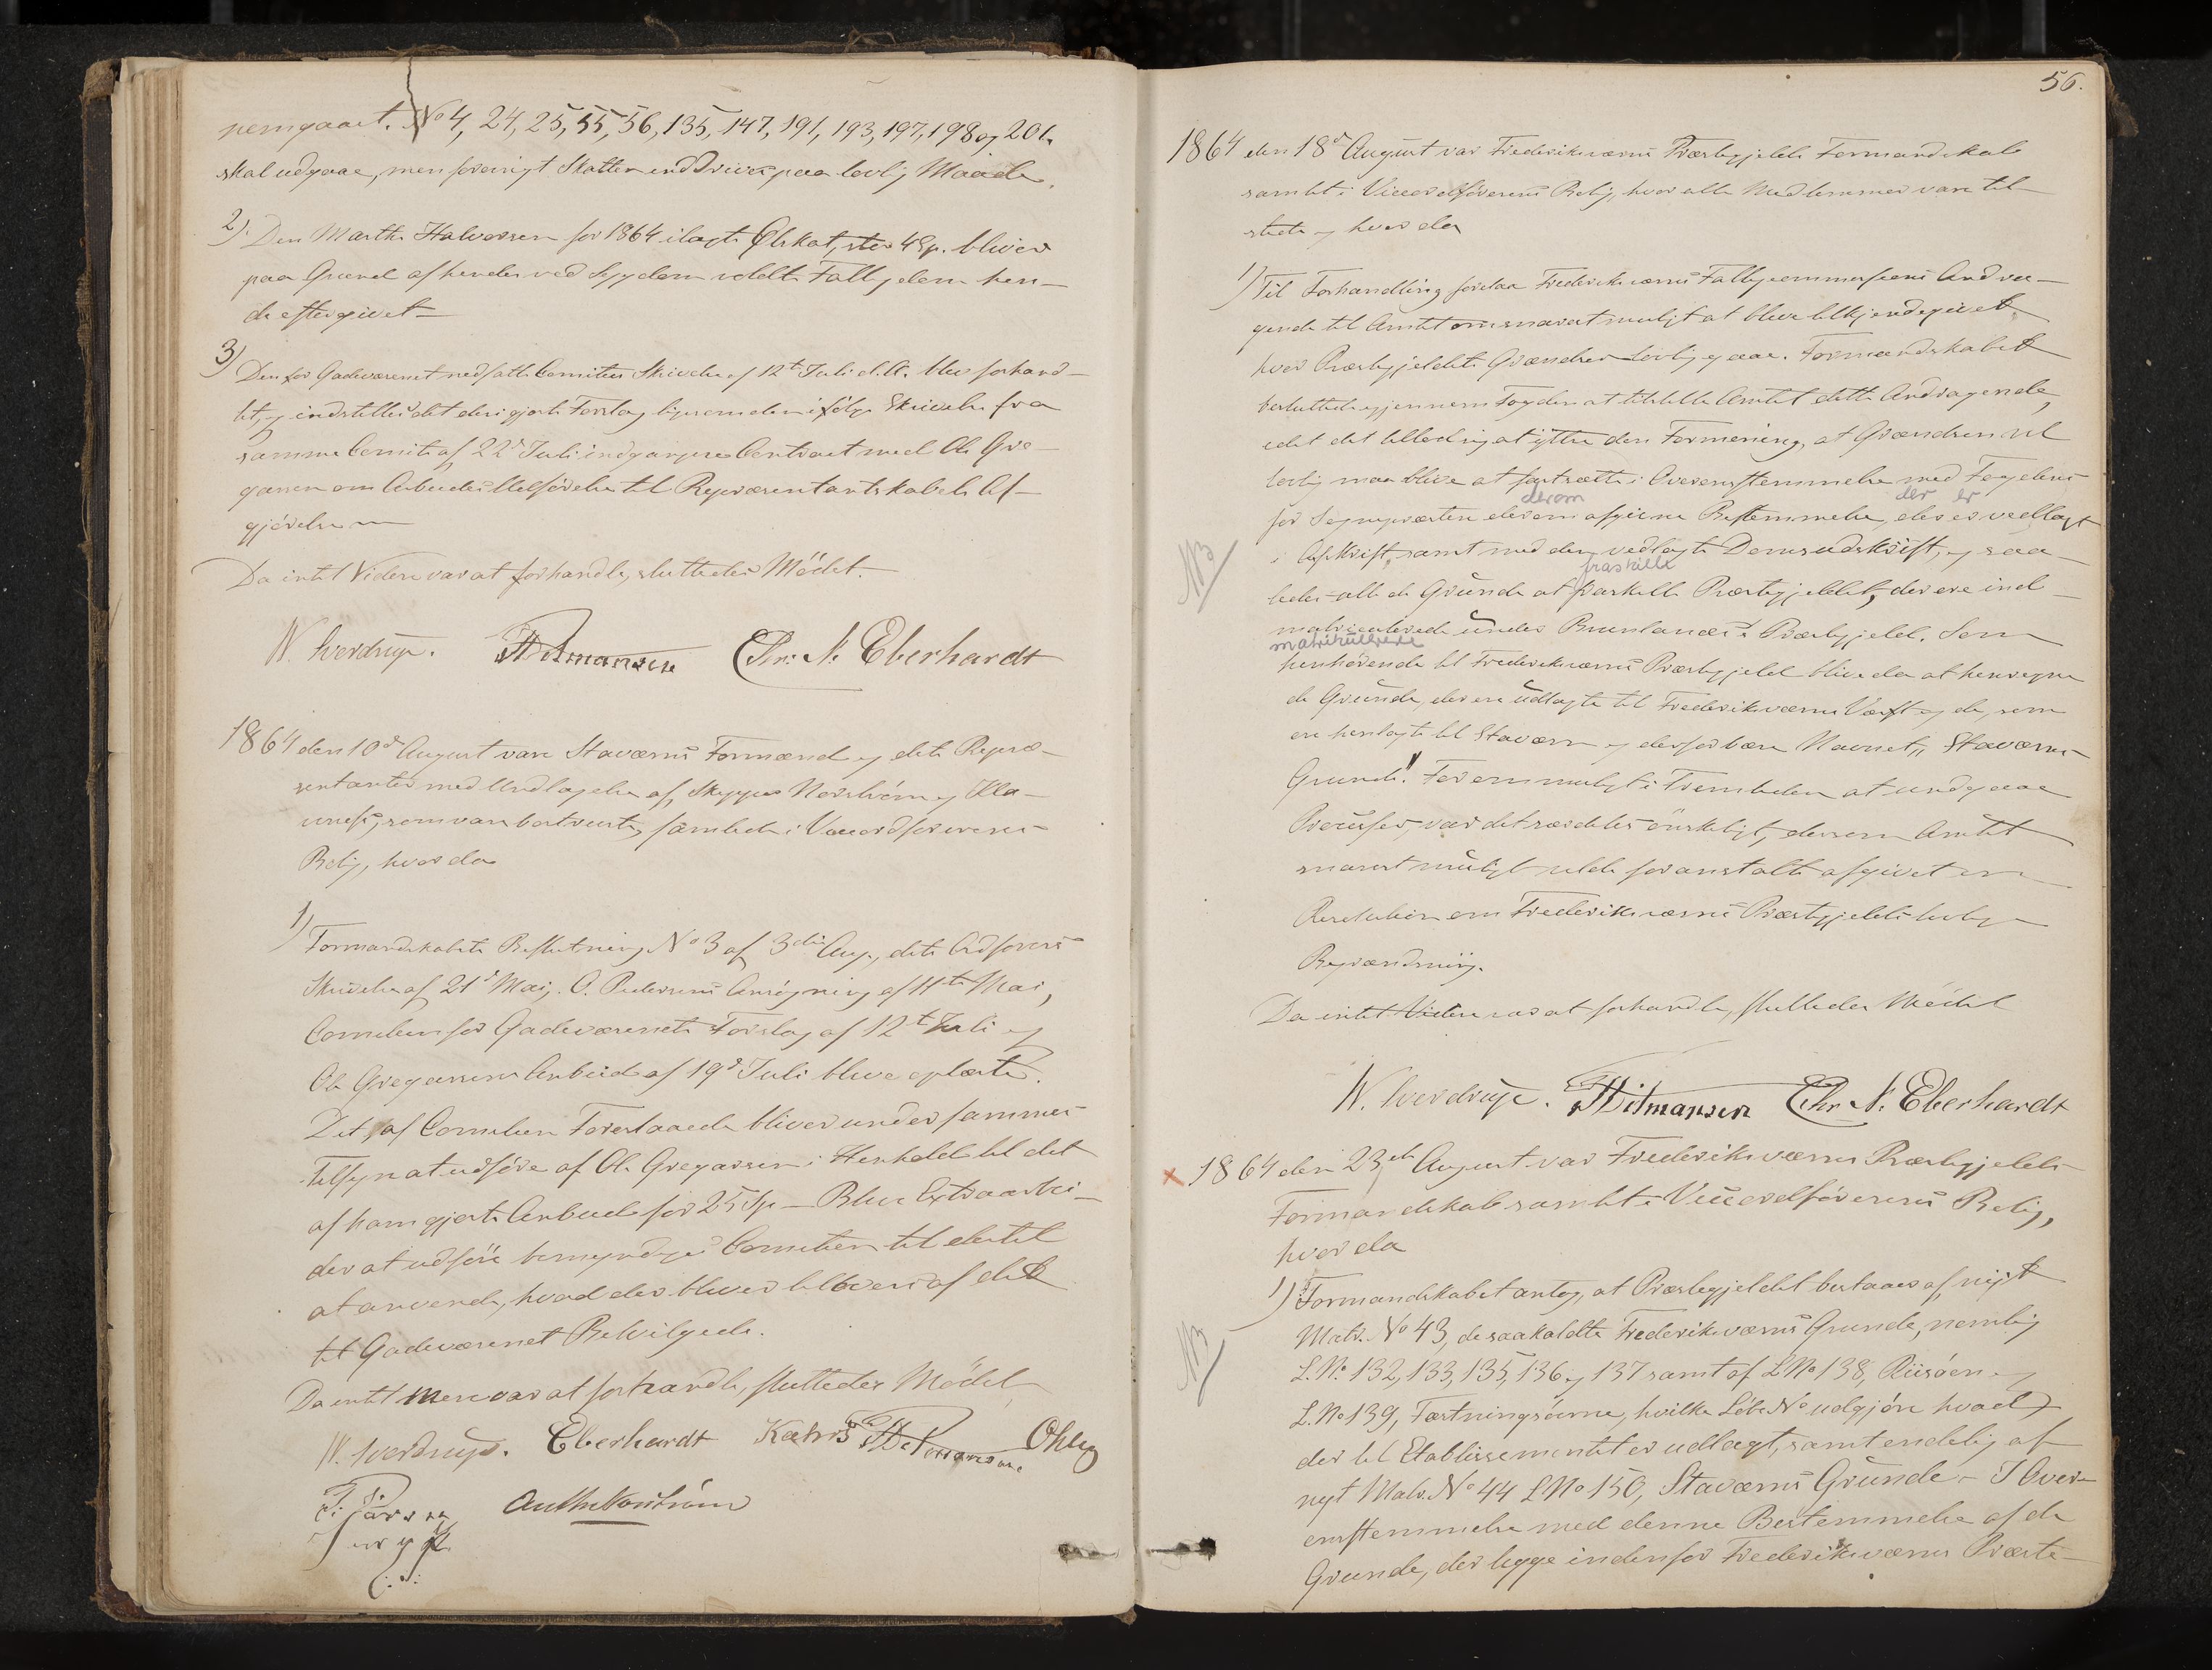 nemgaaet. No 4, 24, 25, 55, 56, 135, 147, 191, 193, 197, 198 og 201.
skal udgaae, men forøvrigt Skatten inddrives paa lovlig Maade.
2). Den Marthe Halvorsen for 1864 ilagte Skat, stor 4 Sp. bliver
paa Grund af hendes ved Sygdom voldte Fattigdom hen-
de eftergivet
3) Den for Gadevæsenet nedsatte Comitees Skrivelse af 12t Juli d.A. blev forhand-
let, og indstilledes det deri gjorte Forslag ligesom den ifølge Skrivelse fra
samme Comite af 22d Juli indgangne Contract med Ole Gre-
gersen om Arbeidets Udførelse til Repræsentantskabets Af-
gjørelse
Da intet Videre var at forhandle, sluttedes Mödet.
W. Sverdrup. Ditmansen Chr: N. Eberhardt
1864 den 10d August vare Staværns Formænd og dets Repræ-
sentanter med Undtagelse af Skipper Norström og
som vare bortreiste, samlede i Viceordförerens
Bolig, hvor da
1) Formandskabets Beslutning No 3 af 3die Aug., dets Ordförers
Skrivelse af 21d Mai, O. Pedersens Ansögning af 11te Mai,
Comiteen for Gadevæsenets Forslag af 12t Juli og
Ole Gregersens Anbud af 19d Juli bleve oplæste.
Det af Comiteen Foreslaaede bliver under sammes
Tilsyn at udføre af Ole Gregersen i Henhold til det
af ham gjorte Anbud for 25 Sp. – Blive Extraarbei-
der at udføre bemyndiges Comiteen til dertil
at anvende, hvad der bliver tilovers af det
til Gadevæsenet Bevilgede.
Da intet Mere var at forhandle, sluttedes Mödet
W. Sverdrup. Eberhardt Ditmansen Ohlug
56.
1864 den 18d August var Frederiksværns Præstegjelds Formandskab
samlet i Viceordförerens Bolig, hvor alle Medlemmer vare til
stede og hvor da
1) Til Forhandling forelaa Frederiksværns Fattigcommissions Andra-
gende til Amtet om snarest muligt at blive tilkjendegivet,
hvor Præstegjeldets Grændser lovlig gaae. Formandskabet
besluttede igjennem Fogden at tilstille Amtet dette Andragende,
idet det tillod sig at yttre den Formening, at Grændsen vel
lovlig maa blive at fortsætte i Overensstemmelse med Fogdens
derom der er
for Sognepræsten derom afgivne Bestemmelse, der er vedlagt
NB
i Afskrift, samt med den vedlagte Domsudskrift, og saa-
fraskille
ledes alle de Grunde at fraskille Præstegjeldet, der ere ind-
matriculerede under Brunlanæs's Præstegjeld. Som
matrikullerede
henhörende til Frederiksværns Præstegjeld blive da at henregne
de Grunde, der ere udlagte til Frederiksværns Værft og de, som
ere henlagte til Staværn og derfor bære Navnet „Staværns
Grunde". For om muligt i Fremtiden at undgaae
Processer, var det særdeles önskeligt, dersom Amtet
snarest muligt vilde foranstalte afgivet en
Resolution om Frederiksværns Præstegjelds lovlige
Begrændsning.
Da intet Videre var at forhandle, sluttedes Mödet
W. Sverdrup. Ditmansen Chr. N. Eberhardt
x 1864 den 23de August var Frederiksværns Præstegjelds
Formandskab samlet i Viceordförerens Bolig,
hvor da
1) Formandskabet antog, at Præstegjeldet bestaaer af nyt
NB
Matr. No 43, de saakaldte Frederiksværns Grunde, nemlig
L.No 132, 133, 135, 136 og 137 samt af L No 138, Riisöen og
L.No 139, Fæstningsöerne, hvilke Löbe No udgjöre hvad
der til Etablissementet er udlagt, samt endelig af
nyt Matr. No 44 L No 150, Staværns Grunde. – I Over-
ensstemmelse med denne Bestemmelse af de
Grunde, der ligge indenfor Frederiksværns Præste-